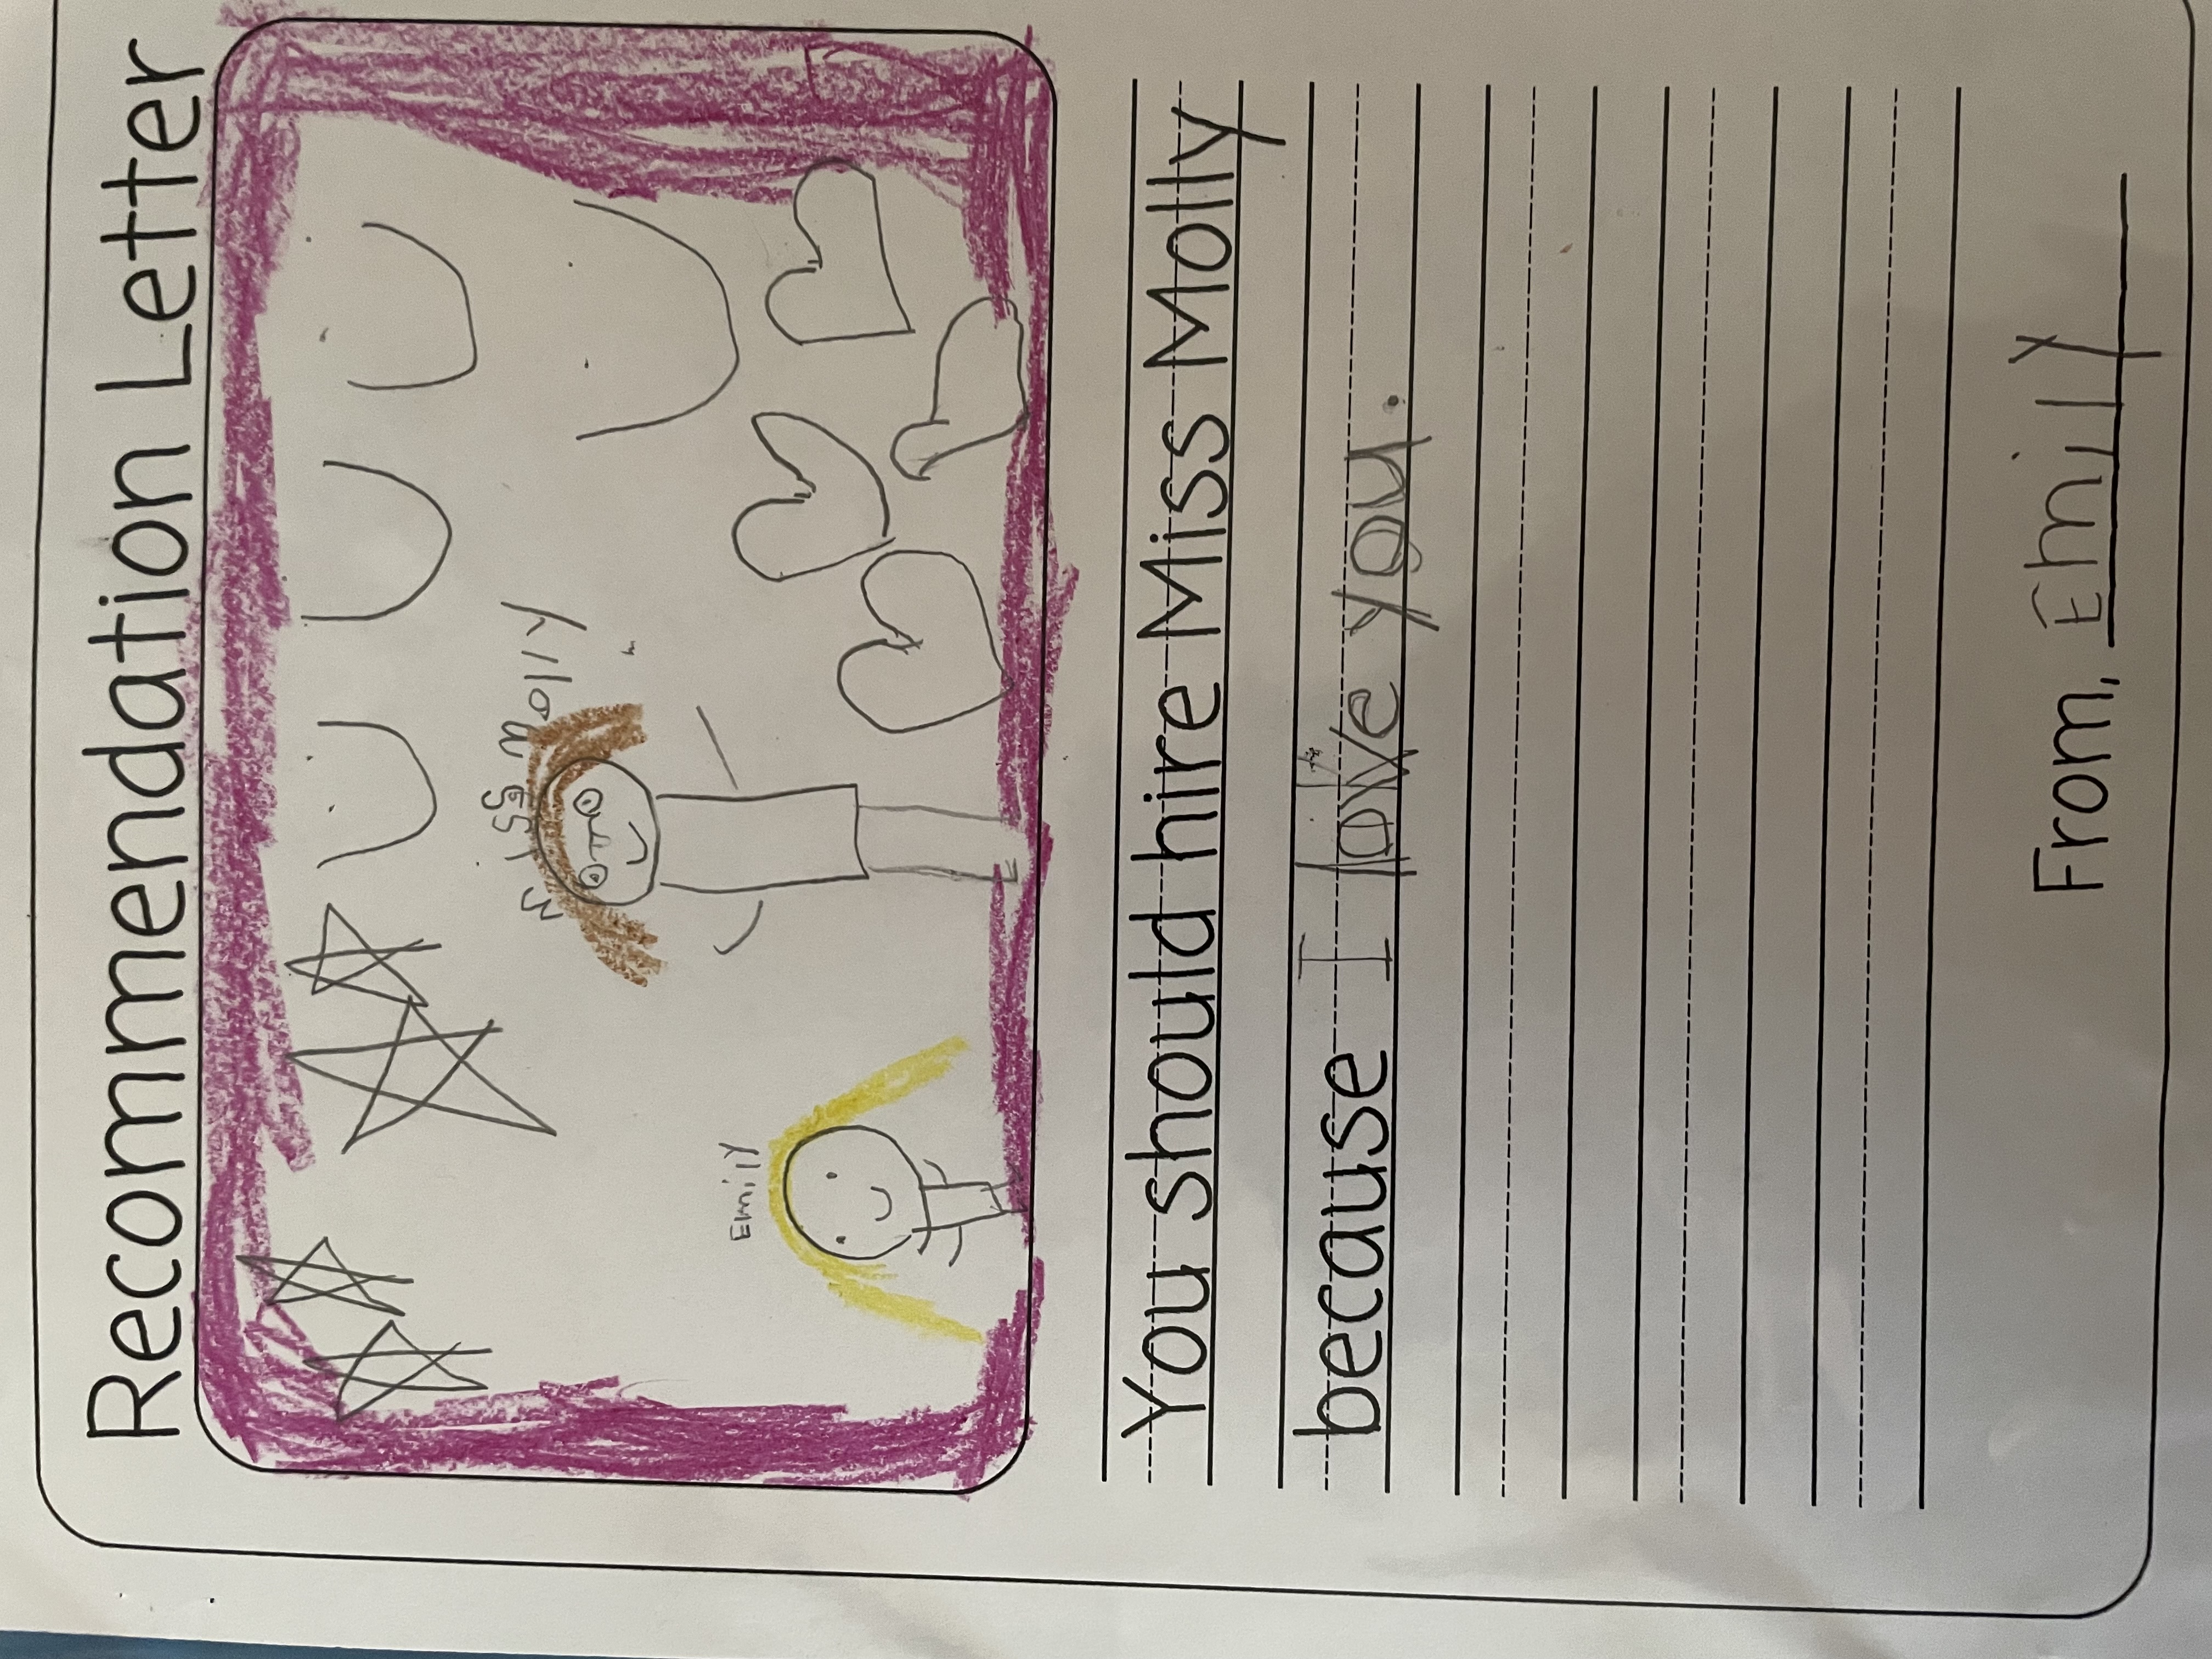 Recommendation Letter
Miss Molly
Emily
You should hire Miss Molly
because I love you.
From, Emily